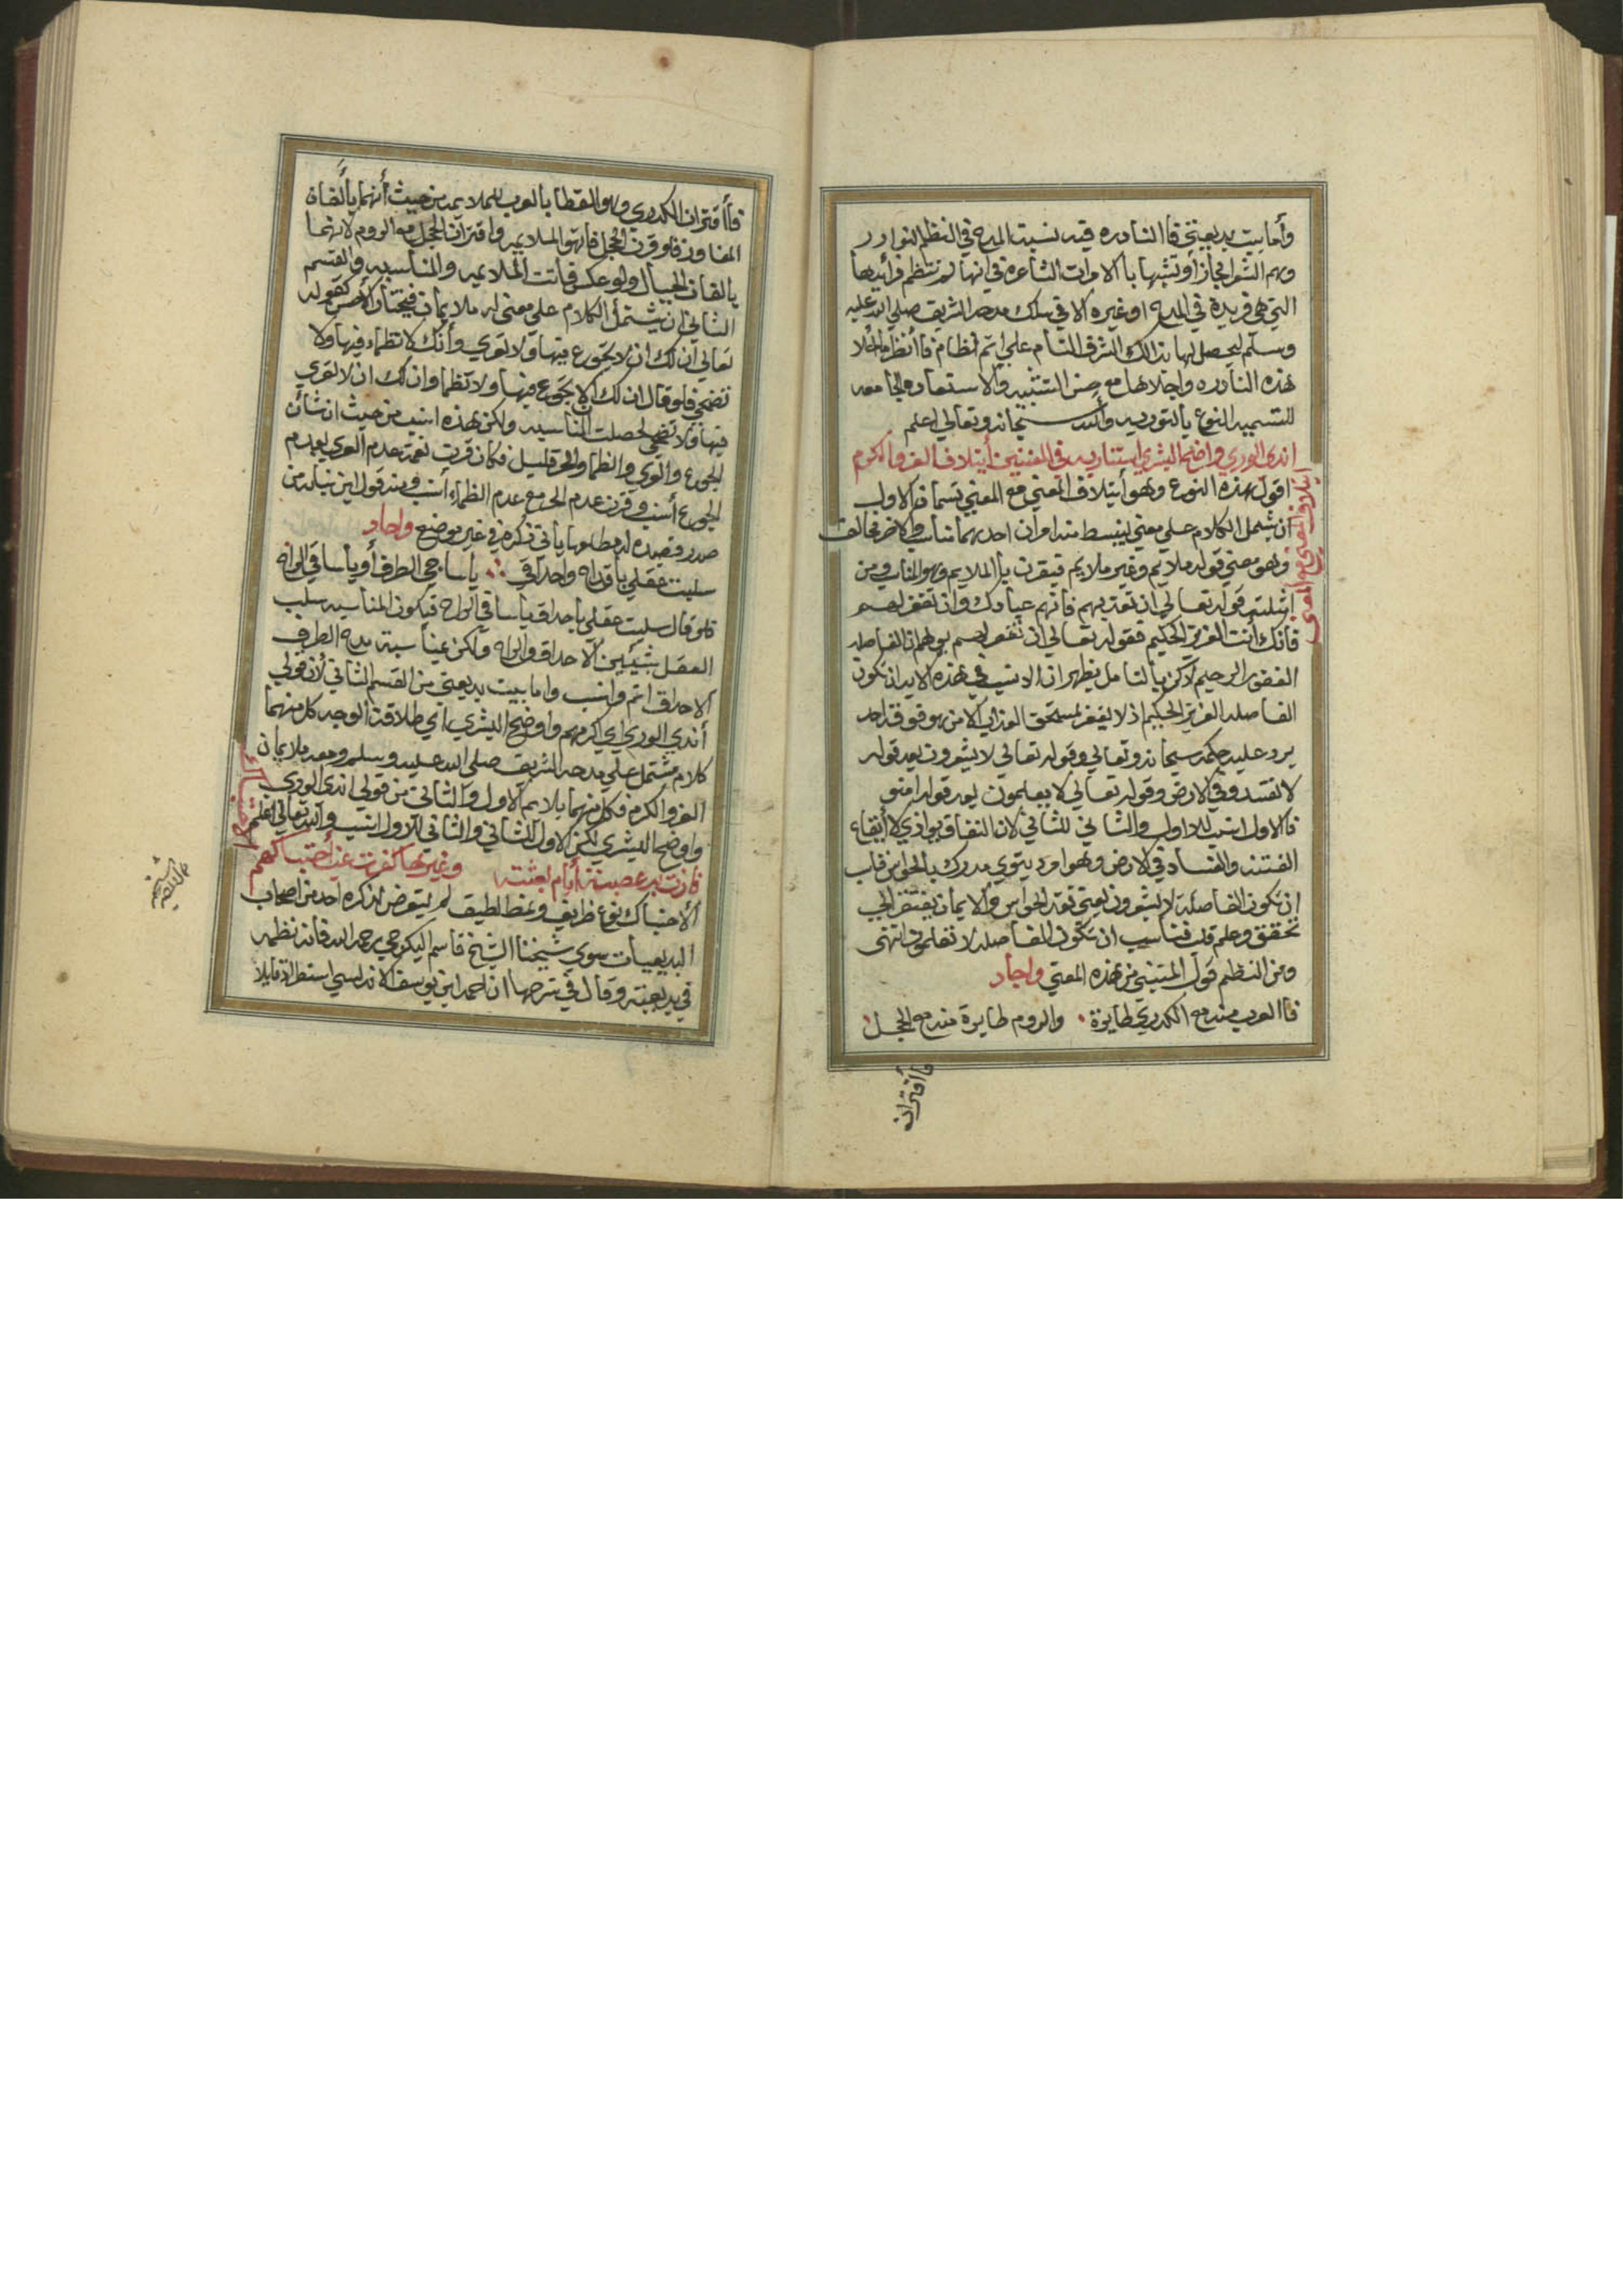 وأما بيت بديعيتي فاالنادره فيه نسبت المدح في النظم النوادر
وهم الشوا مجازا وتشبهها باالامرات الشاعرة في انها لم تنتظم فرائدها
التي هي فريدة في المدح او غيره الا في سلك مدحه الشريف صلي الله عليه
وسلم ليحصل لها بذالك الشرف التام علي اتم انظام فاانظر ما احلا
لهذه النادره واجلاها مع حسن التشبيه والاستعاره الجامعه
للتسميه النوع باالتوريه والله سبحانه وتعالي اعلم
اندي الوري واضح البشري استنار به في المعنيين أيتلاف العز والكرم
اقول هذه النوع وهو أيتلاف المعني مع المعني قسمان الاول
ان يشمل الكلام علي معني ينبسط منه امران احدهما مناسب والاخر مخالف
وهو معني قوله ملايم وغير ملايم فيقرن باالملايم وهو المناسب ومن
امثلته قوله تعالي ان تعذبهم فانهم عبادك وان تغفر لهم
فانك أنت العزيز الحكيم فقوله تعالي ان تغفر لهم يوهم ان الفاصله
الغفور الرحيم لاكن باالتامل يظهر ان الانسب في هذه الايه ان تكون
الفاصله العزيز الحكيم اذ لا يغفر لمستحق العذاب الا من هو فوقه احد
يرد عليه حكمه سبحانه وتعالي وقوله تعالي لا يشعرون بعد قوله
لا تفسدو في الارض وقوله تعالي لا يعلمون بعد قوله امنو
فاالاول انسب للاول والثاني للثاني لان النفاق يوادي لا أيقاع
الفتنه والفساد في الارض وهو امر دنيوي مدرك باالحواس فناسب
ان تكون الفاصله لا يشعرون يعني فقد الحواس والايمان يفتقر الي
تحقق وعلم قلب فناسب ان تكون الفاصله لا تعلمون انتهى
ومن النظم قول المتنبي من هذه المعني واجاد
فاالعرب منه مع الكدري طايرة ٠ والروم طايرة منه مع الحجل
أيتلاف المعني مع المعني
فأاقتران
فأاقتران الكدري وهو القطا باالعرب للملايمه من حيث أنهما يألفان
المفاوز فلو قرن الحجل فاتهو الملايمه واقتران الحجل مع الروم لانهما
يالفان الجبال ولو عكس فاتت الملايمه والمناسبه والقسم
الثاني ان يشتمل الكلام علي معني له ملايمان فيختار الاحسن كقوله
تعالي ان لك ان لا تجوع فيها ولا تعري وأنك لا تظماء فيها ولا
تضحي فلو قال ان لك ان لا تجوع فيها ولا تظما وان لك ان لا تعري
فيها ولا تضحي لحصلت المناسبه ولكن هذه انسب من حيث ان شأن
الجوع والعري والظما والحر قليل فكان قرن نعمة عدم العري بعدم
الجوع أنسب وقرن عدم الحر مع عدم الظماء أنسب ومنه قول ابن نباته من
صدر قصيده له مطلوبها يأتي ذكره في غير موضع واجاد
سلبت عقلي بأقداح واحداقي ∴ يا ساجي الطرف أو يا ساقي الراح
فلو قال سلبت عقلي باحداق يا ساقي الراح فيكون المناسبه سلب
العقل بشيئين الاحداق والراح ولكن مناسبة مدح الطرف
الاحداق اتم وانسب واما بيت بديعيتي من القسم الثاني لان قولي
أندي الوري اي اكرمهم واوضح البشري اي طلاقت الوجه كل منهما
كلام مشتمل علي مدحه الشريف صلي الله عليه وسلم ومعه ملايمان
العز والكرم فكل منهما يلايم الاول والثاني من قولي اندي الوري
واوضح البشري لكن الاول للثاني والثاني للاول انسب والله تعالي اعلم
فازت به عصبة أيام بعثته وغيرها كفرت عند أحتباكهم
الاحتباك نوع ظريف ونمط لطيف لم يتعرض لذكره احد من اصحاب
البديعيات سوي شيخنا الشيخ قاسم البكرجي رحمه الله فانه نظمه
في بديعيته وقال في شرحها ان احمد ابن يوسف الاندلسي استطراد قايلا
الاحتباك